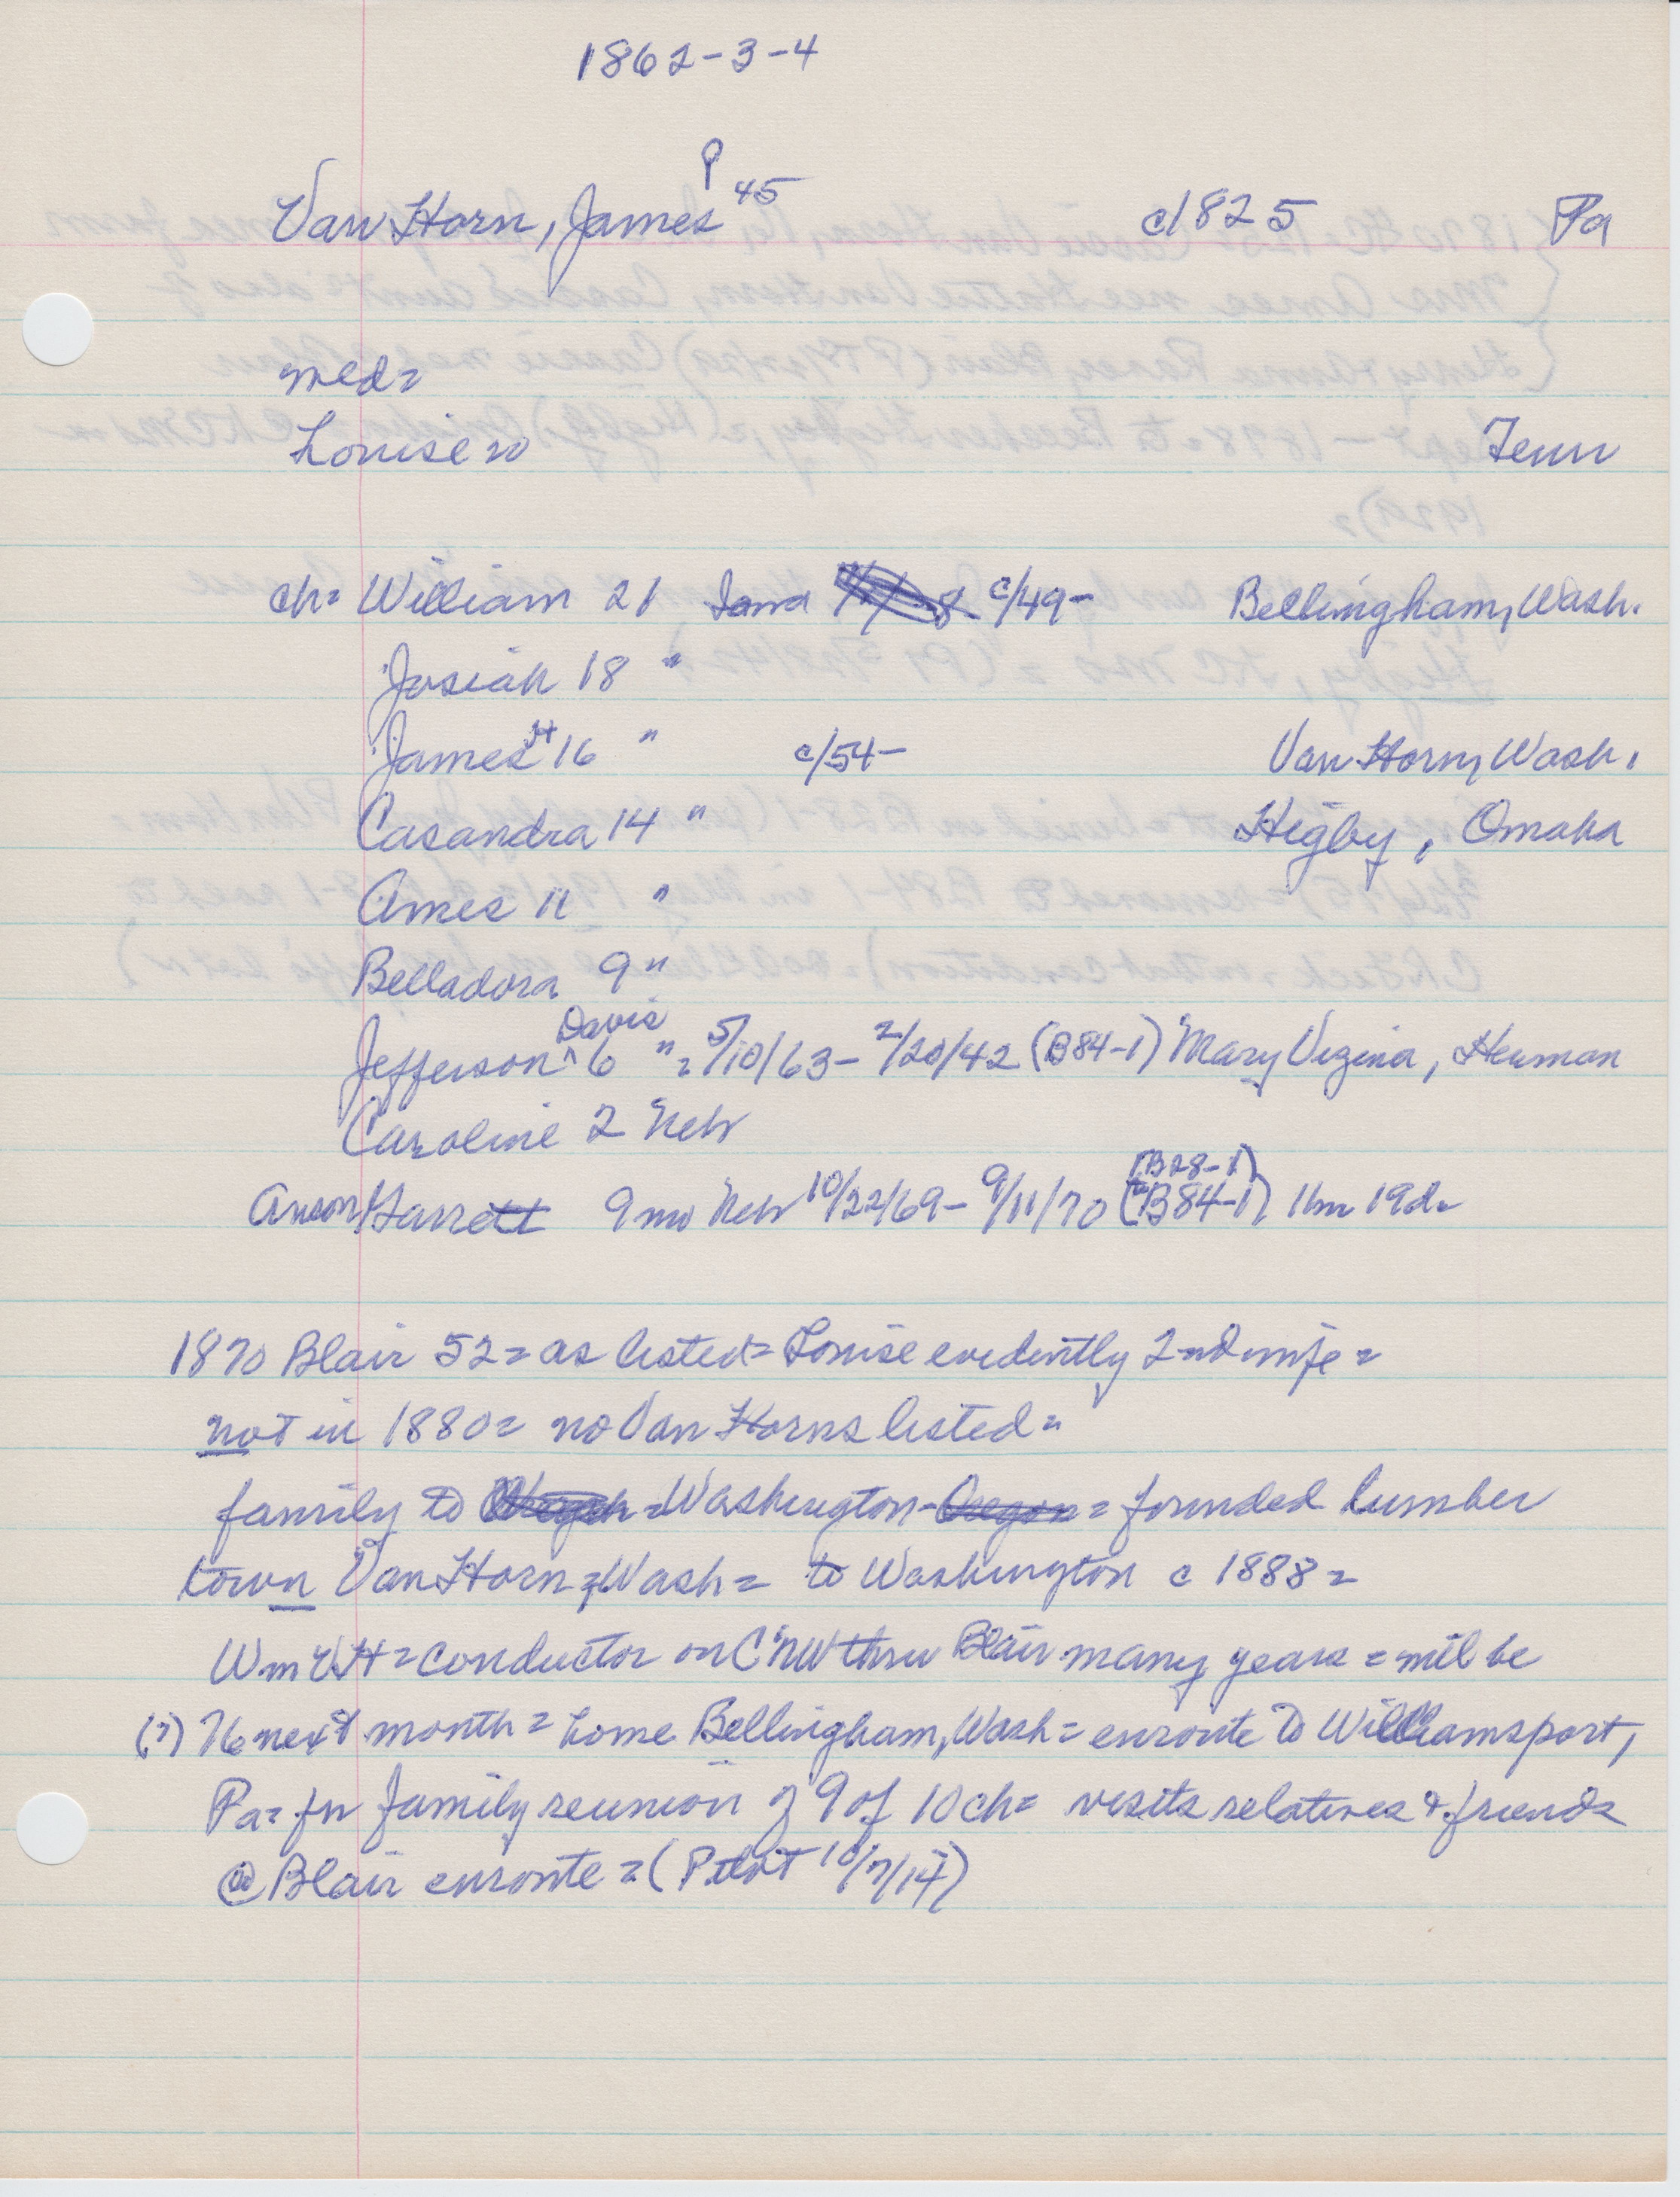 1862-3-4
P
Van Horn, James 45 c/1825 Pa
med=
Louise 20 Tenn
ch= William 21 Iowa c/49- Bellingham, Wash.
Josiah 18 "
James H 16 " c/54- Van Horn, Wash.
Casandra 14 " Higby, Omaha
Ames 11 "
Belladora 9 "
Davis
Jefferson ^ 6 " = 5/10/63- 2/20/42 (B84-1) Mary Virginia, Herman
Caroline 2 Neb
(B28-1)
Anson/Garrett 9 mo Neb 10/22/69- 9/11/70 (B84-1) 11m 19d=
1870 Blair 52= as listed= Louise evidently 2nd wife=
not in 1880= no Van Horns listed=
family to = Washington - Oregon = founded lumber
town Van Horn, Wash= to Washington c 1888=
Wm VH= conductor on CNW thru Blair many years = will be
(?) 76 next month = home Bellingham, Wash= enroute to Williamsport,
Pa= for family reunion of 9 of 10 ch= visits relatives & friends
@ Blair enroute = (Pilot 10/7/14)